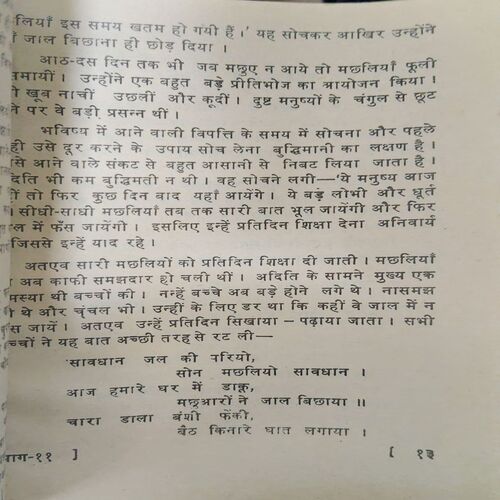 लियाँ इस समय खतम हो गयी हैं।' यह सोचकर आखिर उन्होंने
जाल बिछाना ही छोड़ दिया ।
आठ-दस दिन तक भी जब मछुए न आये तो मछलियाँ फूली
समायीं । उन्होंने एक बहुत बड़े प्रीतिभोज का आयोजन किया ।
खूब नाचीं उछलीं और कूदीं । दुष्ट मनुष्यों के चंगुल से छूट
ने पर वे बड़ी प्रसन्न थीं ।
भविष्य में आने वाली विपत्ति के समय में सोचना और पहले
ही उसे दूर करने के उपाय सोच लेना बुद्धिमानी का लक्षण है ।
से आने वाले संकट से बहुत आसानी से निबट लिया जाता है ।
दिति भी कम बुद्धिमती न थी । वह सोचने लगी—'ये मनुष्य आज
तो फिर कुछ दिन बाद यहाँ आयेंगे । ये बड़े लोभी और धूर्त
। सीधी-साधी मछलियाँ तब तक सारी बात भूल जायेंगी और फिर
ल में फँस जायेंगी । इसलिए इन्हें प्रतिदिन शिक्षा देना अनिवार्य
जिससे इन्हें याद रहे ।
अतएव सारी मछलियों को प्रतिदिन शिक्षा दी जाती । मछलियाँ
अब काफी समझदार हो चली थीं । अदिति के सामने मुख्य एक
मस्या थी बच्चों की । नन्हें बच्चे अब बड़े होने लगे थे । नासमझ
थे और चंचल भी । उन्हीं के लिए डर था कि कहीं वे जाल में न
स जायें । अतएव उन्हें प्रतिदिन सिखाया – पढ़ाया जाता । सभी
च्चों ने यह बात अच्छी तरह से रट ली—
सावधान जल की परियो,
सोन मछलियो सावधान ।
आज हमारे घर में डाकू,
मछुआरों ने जाल बिछाया ॥
चारा डाला बंशी फेंकी,
बैठ किनारे घात लगाया ।
भाग-११ ] [ १३